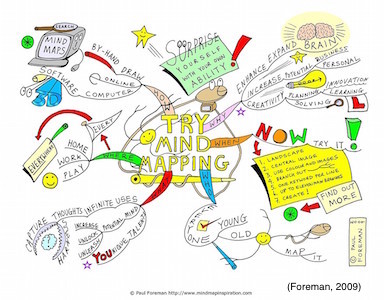 SEARCH
MIND
MAPS
BY-HAND DRAW
SOFTWARE
ONLINE
COMPUTER
HOW
SURPRISE
YOURSELF
WITH YOUR OWN
ABILITY!
BRAIN
ENHANCE EXPAND
INCREASE POTENTIAL BUSINESS
PERSONAL
CREATIVITY PLANNING
INNOVATION
LEARNING
SOLVING
WHY
TRY
MIND
MAPPING
WHEN
NOW
TRY IT!
1. LANDSCAPE
2. CENTRAL IMAGE
3. USE COLOUR AND IMAGES
4. BRANCH OUT
5. ONE KEYWORD PER LINE
7. CREATE!
FIND OUT
MORE
EVERY
EVERYWHERE
HOME
WORK
PLAY
WHERE
CAPTURE THOUGHTS INFINITE USES
INCREASE
UNLOCK
POTENTIAL MIND
YOU
UNIQUE TALENT
ONE
YOUNG
OLD
MAP IT
© PAUL
FOREMAN
(Foreman, 2009)
© Paul Foreman http://www.mindmapinspiration.com